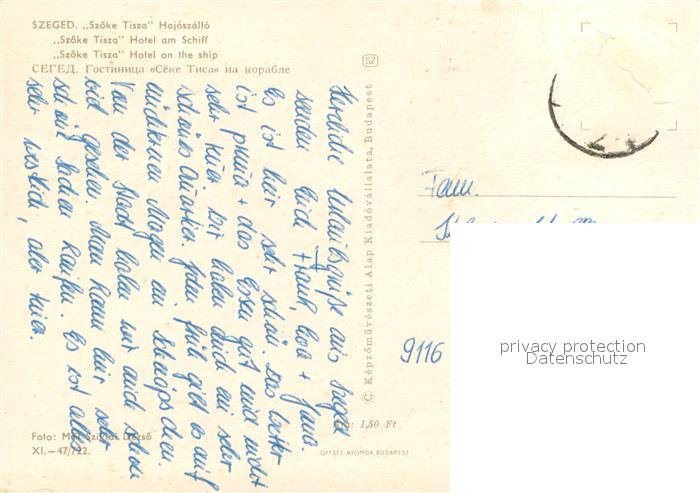 SZEGED. „Szőke Tisza" Hajószálló
„Szőke Tisza" Hotel am Schiff
„Szőke Tisza" Hotel on the ship
СЕГЕД. Гостиница «Сёке Тиса» на корабле
SZ
Herzliche Urlaubsgrüße aus Szeged
senden Euch Frank, +
Es ist hier sehr schön. Das Wetter
ist prima + das Essen gut und nicht
sehr teuer. Wir haben auch ein sehr
schönes Quartier. Jeden früh gibt es auf
nüchternen Magen ein Schnäpschen.
Von der Stadt haben wir auch schon
viel gesehen. Man kann hier sehr
schöne Sachen kaufen. Es ist alles
sehr, aber teuer.
© Képzőművészeti Alap Kiadóvállalata, Budapest
Fam.
9116
privacy protection
Datenschutz
1,50 Ft
Foto: Dezső
XI.—47/722.
OFFSET-NYOMDA, BUDAPEST